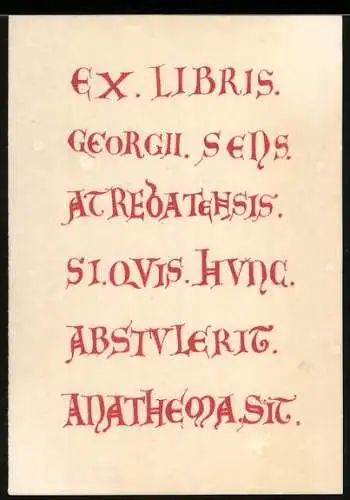 EX. LIBRIS.
GEORGII. SENS.
ATREBATENSIS.
SI. QVIS. HVNC.
ABSTVLERIT.
ANATHEMA. SIT.